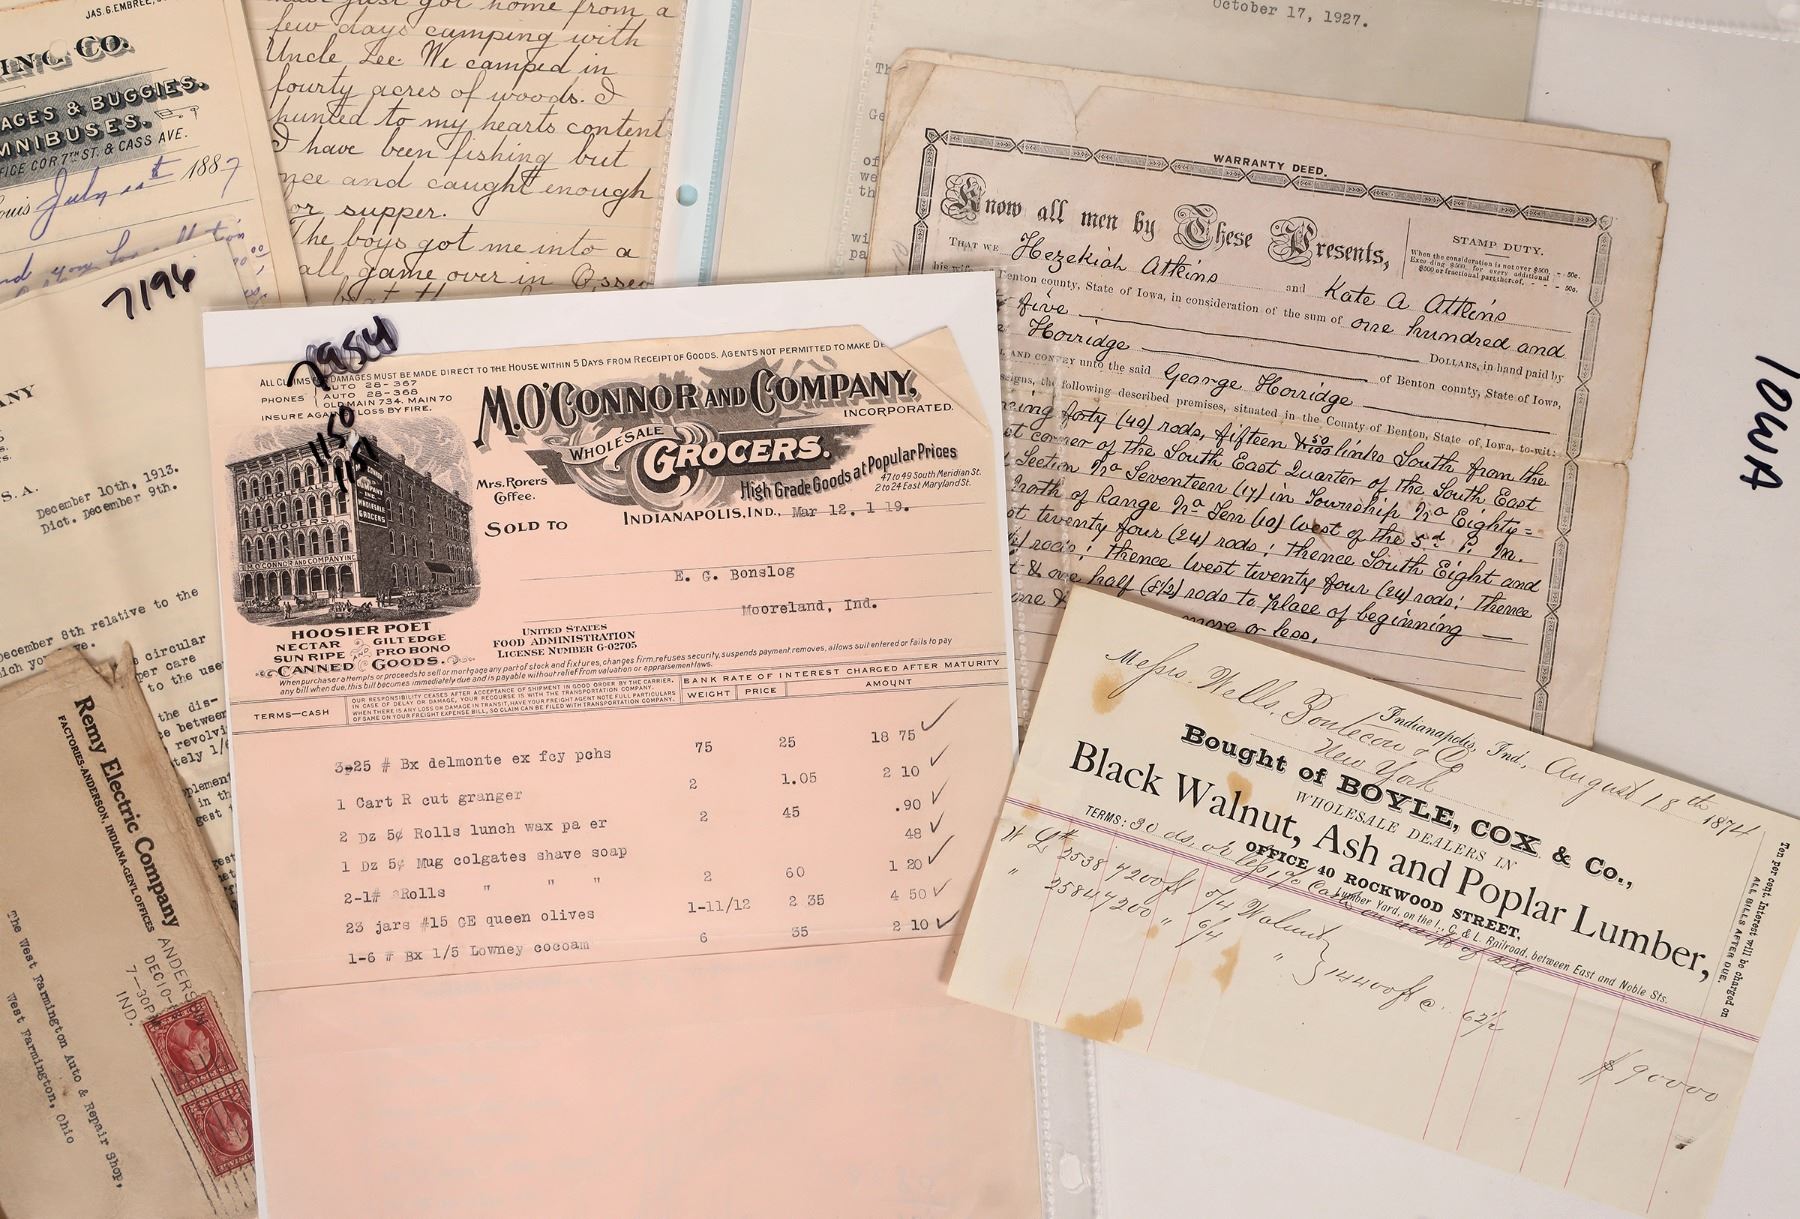 JAS. G. EMBREE,
ING CO.
AGES & BUGGIES.
MNIBUSES.
FICE COR 7TH ST. & CASS AVE.
ouis July 1887
just got home from a
few days camping with
Uncle Lee. We camped in
fourty acres of woods. I
hunted to my hearts content
I have been fishing but
nce and caught enough
or supper.
The boys got me into a
all game over in Osseo
7196
ANY
S. A.
December 10th, 1913.
Dict. December 9th.
December 8th relative to the
circular
per care
to the use
the dis-
e between
revolvi
tely 1/
plement
in th
gest
Remy Electric Company
FACTORIES-ANDERSON, INDIANA-GEN'L OFFICES
ANDERSON
DEC 10
7-30P
IND.
The West Farmington Auto & Repair Shop,
West Farmington, Ohio
October 17, 1927.
Th
Ge
of
we
th
wi
pa
WARRANTY DEED.
Know all men by These Presents,
STAMP DUTY.
When the consideration is not over $500, - 50c.
Exceeding $500, for every additional
$500 or fractional part thereof, - - - - 50c.
THAT WE Hezekiah Atkins and Kate A Atkins
his wife Benton county, State of Iowa, in consideration of the sum of one hundred and
five DOLLARS, in hand paid by
Horridge of Benton county, State of Iowa,
AND CONVEY unto the said George Horridge
signs, the following described premises, situated in the County of Benton, State of Iowa, to-wit:
cing forty (40) rods, fifteen & 50/100 links South from the
st corner of the South East Quarter of the South East
Section No Seventeen (17) in Township No Eighty=
North of Range No Ten (10) West of the 5th P. M.
st twenty four (24) rods; thence South Eight and
rods; thence West twenty four (24) rods; thence
t & one half (8½) rods to place of beginning
more or less.
IOWA
7954
1150
1151
ALL CLAIMS OF DAMAGES MUST BE MADE DIRECT TO THE HOUSE WITHIN 5 DAYS FROM RECEIPT OF GOODS. AGENTS NOT PERMITTED TO MAKE DE
PHONES AUTO 28-367
AUTO 28-368
OLD MAIN 734. MAIN 70
INSURE AGAINST LOSS BY FIRE.
M. O'CONNOR AND COMPANY,
INCORPORATED.
WHOLESALE GROCERS.
High Grade Goods at Popular Prices
Mrs. Rorers
Coffee.
47 to 49 South Meridian St.
2 to 24 East Maryland St.
GROCERS
M.O'CONNOR AND COMPANY INC
SOLD TO
INDIANAPOLIS, IND., Mar 12. 1 19.
E. G. Bonslog
Mooreland, Ind.
HOOSIER POET
NECTAR GILT EDGE
SUN RIPE PRO BONO
CANNED GOODS.
UNITED STATES
FOOD ADMINISTRATION
LICENSE NUMBER G-02705
When purchaser attempts or proceeds to sell or mortgage any part of stock and fixtures, changes firm, refuses security, suspends payment, removes, allows suit entered or fails to pay
any bill when due, this bill becomes immediately due and is payable without relief from valuation or appraisement laws.
TERMS—CASH
OUR RESPONSIBILITY CEASES AFTER ACCEPTANCE OF SHIPMENT IN GOOD ORDER BY THE CARRIER.
IN CASE OF DELAY OR DAMAGE, YOUR RECOURSE IS WITH THE TRANSPORTATION COMPANY.
WHEN THERE IS ANY LOSS OR DAMAGE IN TRANSIT, HAVE YOUR FREIGHT AGENT NOTE FULL PARTICULARS
OF SAME ON YOUR FREIGHT EXPENSE BILL, SO CLAIM CAN BE FILED WITH TRANSPORTATION COMPANY.
BANK RATE OF INTEREST CHARGED AFTER MATURITY
WEIGHT PRICE AMOUNT
3-25 # Bx delmonte ex fcy pchs 75 25 18 75
1 Cart R cut granger 2 1.05 2 10
2 Dz 5¢ Rolls lunch wax pa er 2 45 .90
1 Dz 5¢ Mug colgates shave soap 48
2-1# Rolls " " " 2 60 1 20
23 jars #15 GE queen olives 1-11/12 2 35 4 50
1-6 # Bx 1/5 Lowney cocoam 6 35 2 10
Indianapolis, Ind., August 18th 1874
Messrs. Wells,
New York
Bought of BOYLE, COX & Co.,
WHOLESALE DEALERS IN
Black Walnut, Ash and Poplar Lumber,
OFFICE, 40 ROCKWOOD STREET,
Lumber Yard, on the I., C. & L. Railroad, between East and Noble Sts.
TERMS: 30 ds, or less 1% Cash on receipt of bill
Ten per cent. interest will be charged on
ALL BILLS AFTER DUE.
2538 7200 ft 5/4 Walnut
" 25844 7200 " 6/4 "
14400 ft @ 62½
$ 900 00